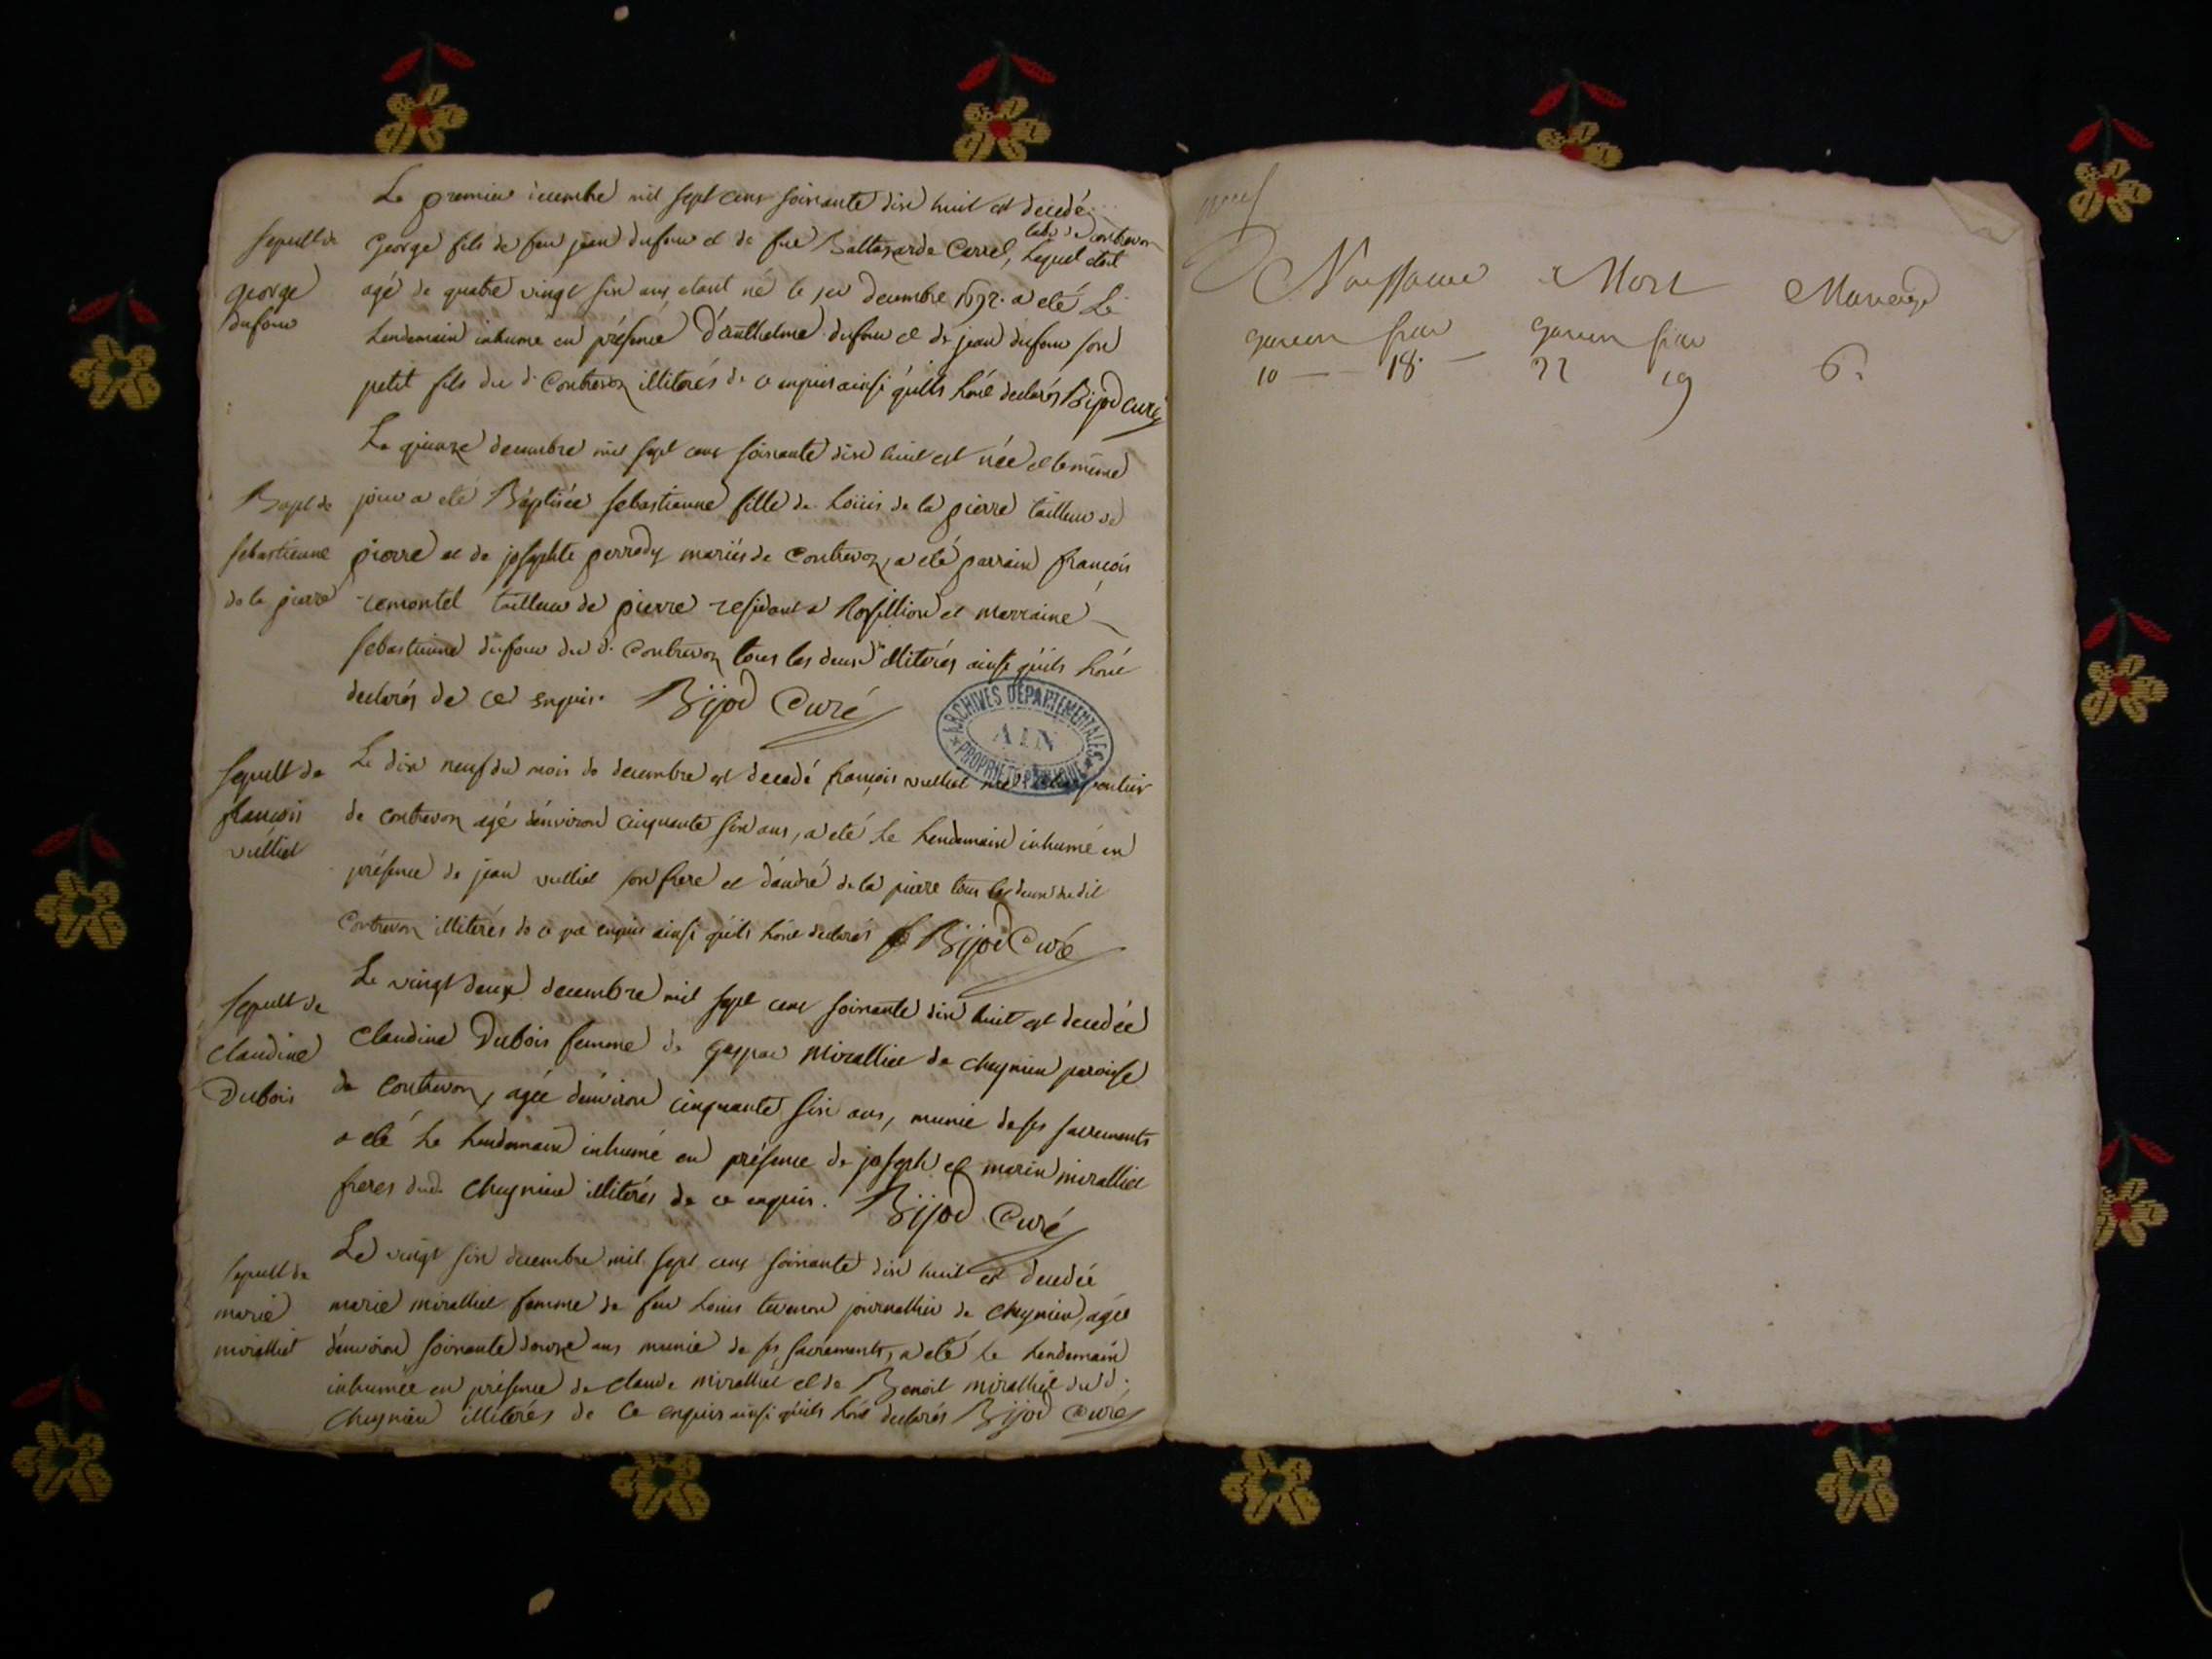 Le premier decembre mil sept cens soixante dix huit est decedé
Sepult de
George fils de feu jean dufour et de fue Baltazarde Carrel, lequel etoit
labr de contrevoz
george
dufour
agé de quatre vingt six ans etant né le 1er decembre 1692. a eté Le
Lendemain inhumé en présence d'anthelme dufour et de jean dufour son
petit fils du d. Contrevoz illiterés de ce enquis ainsi qu'ils l'ont declarés Bijod curé
Le quinze decembre mil sept cens soixante dix huit est née et le même
Bapt de
jour a eté Baptisée sebastienne fille de Loüis de la pierre tailleur de
sebastienne
pierre et de josephte perrody mariés de Contrevoz, a eté parrain françois
de la pierre
remontet tailleur de pierre residant a Rossillion et marraine
sebastienne dufour du d. Contrevoz tous les deux illiterés ainsi qu'ils l'ont
declarés de ce enquis. Bijod Curé
ARCHIVES DÉPARTEMENTALES
AIN
PROPRIÉTÉ PUBLIQUE
Sepult de
Le dix neuf du mois de decembre est decedé françois vulliet
françois
vulliet
de contrevoz agé d'environ cinquante six ans, a eté Le Lendemain inhumé en
présence de jean vulliet son frere et d'andré de la pierre tous les deux du dit
Contrevoz illiterés de ce enquis ainsi qu'ils l'ont declarés Bijod Curé
Le vingt deux decembre mil sept cens soixante dix huit est decedée
Sepult de
claudine
Dubois
Claudine Dubois femme de gaspar miralliet de cheynieu paroisse
de contrevoz, agée d'environ cinquante six ans, munie de ses sacrements
a eté Le Lendemain inhumé en présence de joseph et marin miralliet
freres dud. Cheynieu illiterés de ce enquis. Bijod Curé
Le vingt six decembre mil sept cens soixante dix huit est decedée
Sepult de
marie
miralliet
marie miralliet femme de feu Louis journallier de Cheynieu, agée
d'environ soixante douze ans munie de ses sacréments, a eté Le Lendemain
inhumée en présence de claude miralliet et de Benoit miralliet du d.
Cheynieu illiterés de Ce enquis ainsi qu'ils l'ont declarés Bijod Curé
Naissance Mort Mariage
garcon fille garcon fille
10 18. 22 19 6.